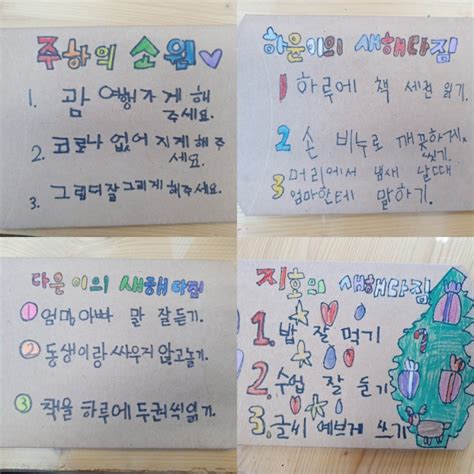 주하의 소원
1. 괌 여행가게 해
주세요.
2. 코로나 없어지게 해주
세요.
3. 그림더잘그리게해주세요.
하윤이의 새해다짐
1 하루에 책 세권 읽기.
2 손 비누로 깨끗하게
씻기.
3 머리에서 냄새 날때
엄마한테 말하기.
다은이의 새해다짐
1 엄마, 아빠 말 잘듣기.
2 동생이랑 싸우지 않고놀기.
3 책을 하루에 두권씩읽기.
지호의 새해다짐
1. 밥 잘 먹기
2. 수업 잘 듣기
3. 글씨 예쁘게 쓰기